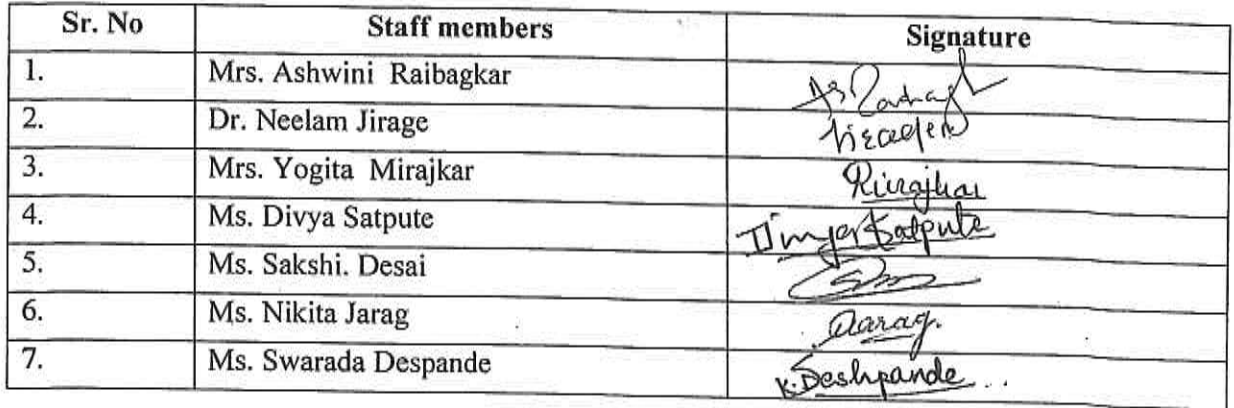 Sr. No Staff members Signature
1. Mrs. Ashwini Raibagkar
2. Dr. Neelam Jirage
3. Mrs. Yogita Mirajkar
4. Ms. Divya Satpute Satpute
5. Ms. Sakshi. Desai
6. Ms. Nikita Jarag
7. Ms. Swarada Despande K.Deshpande